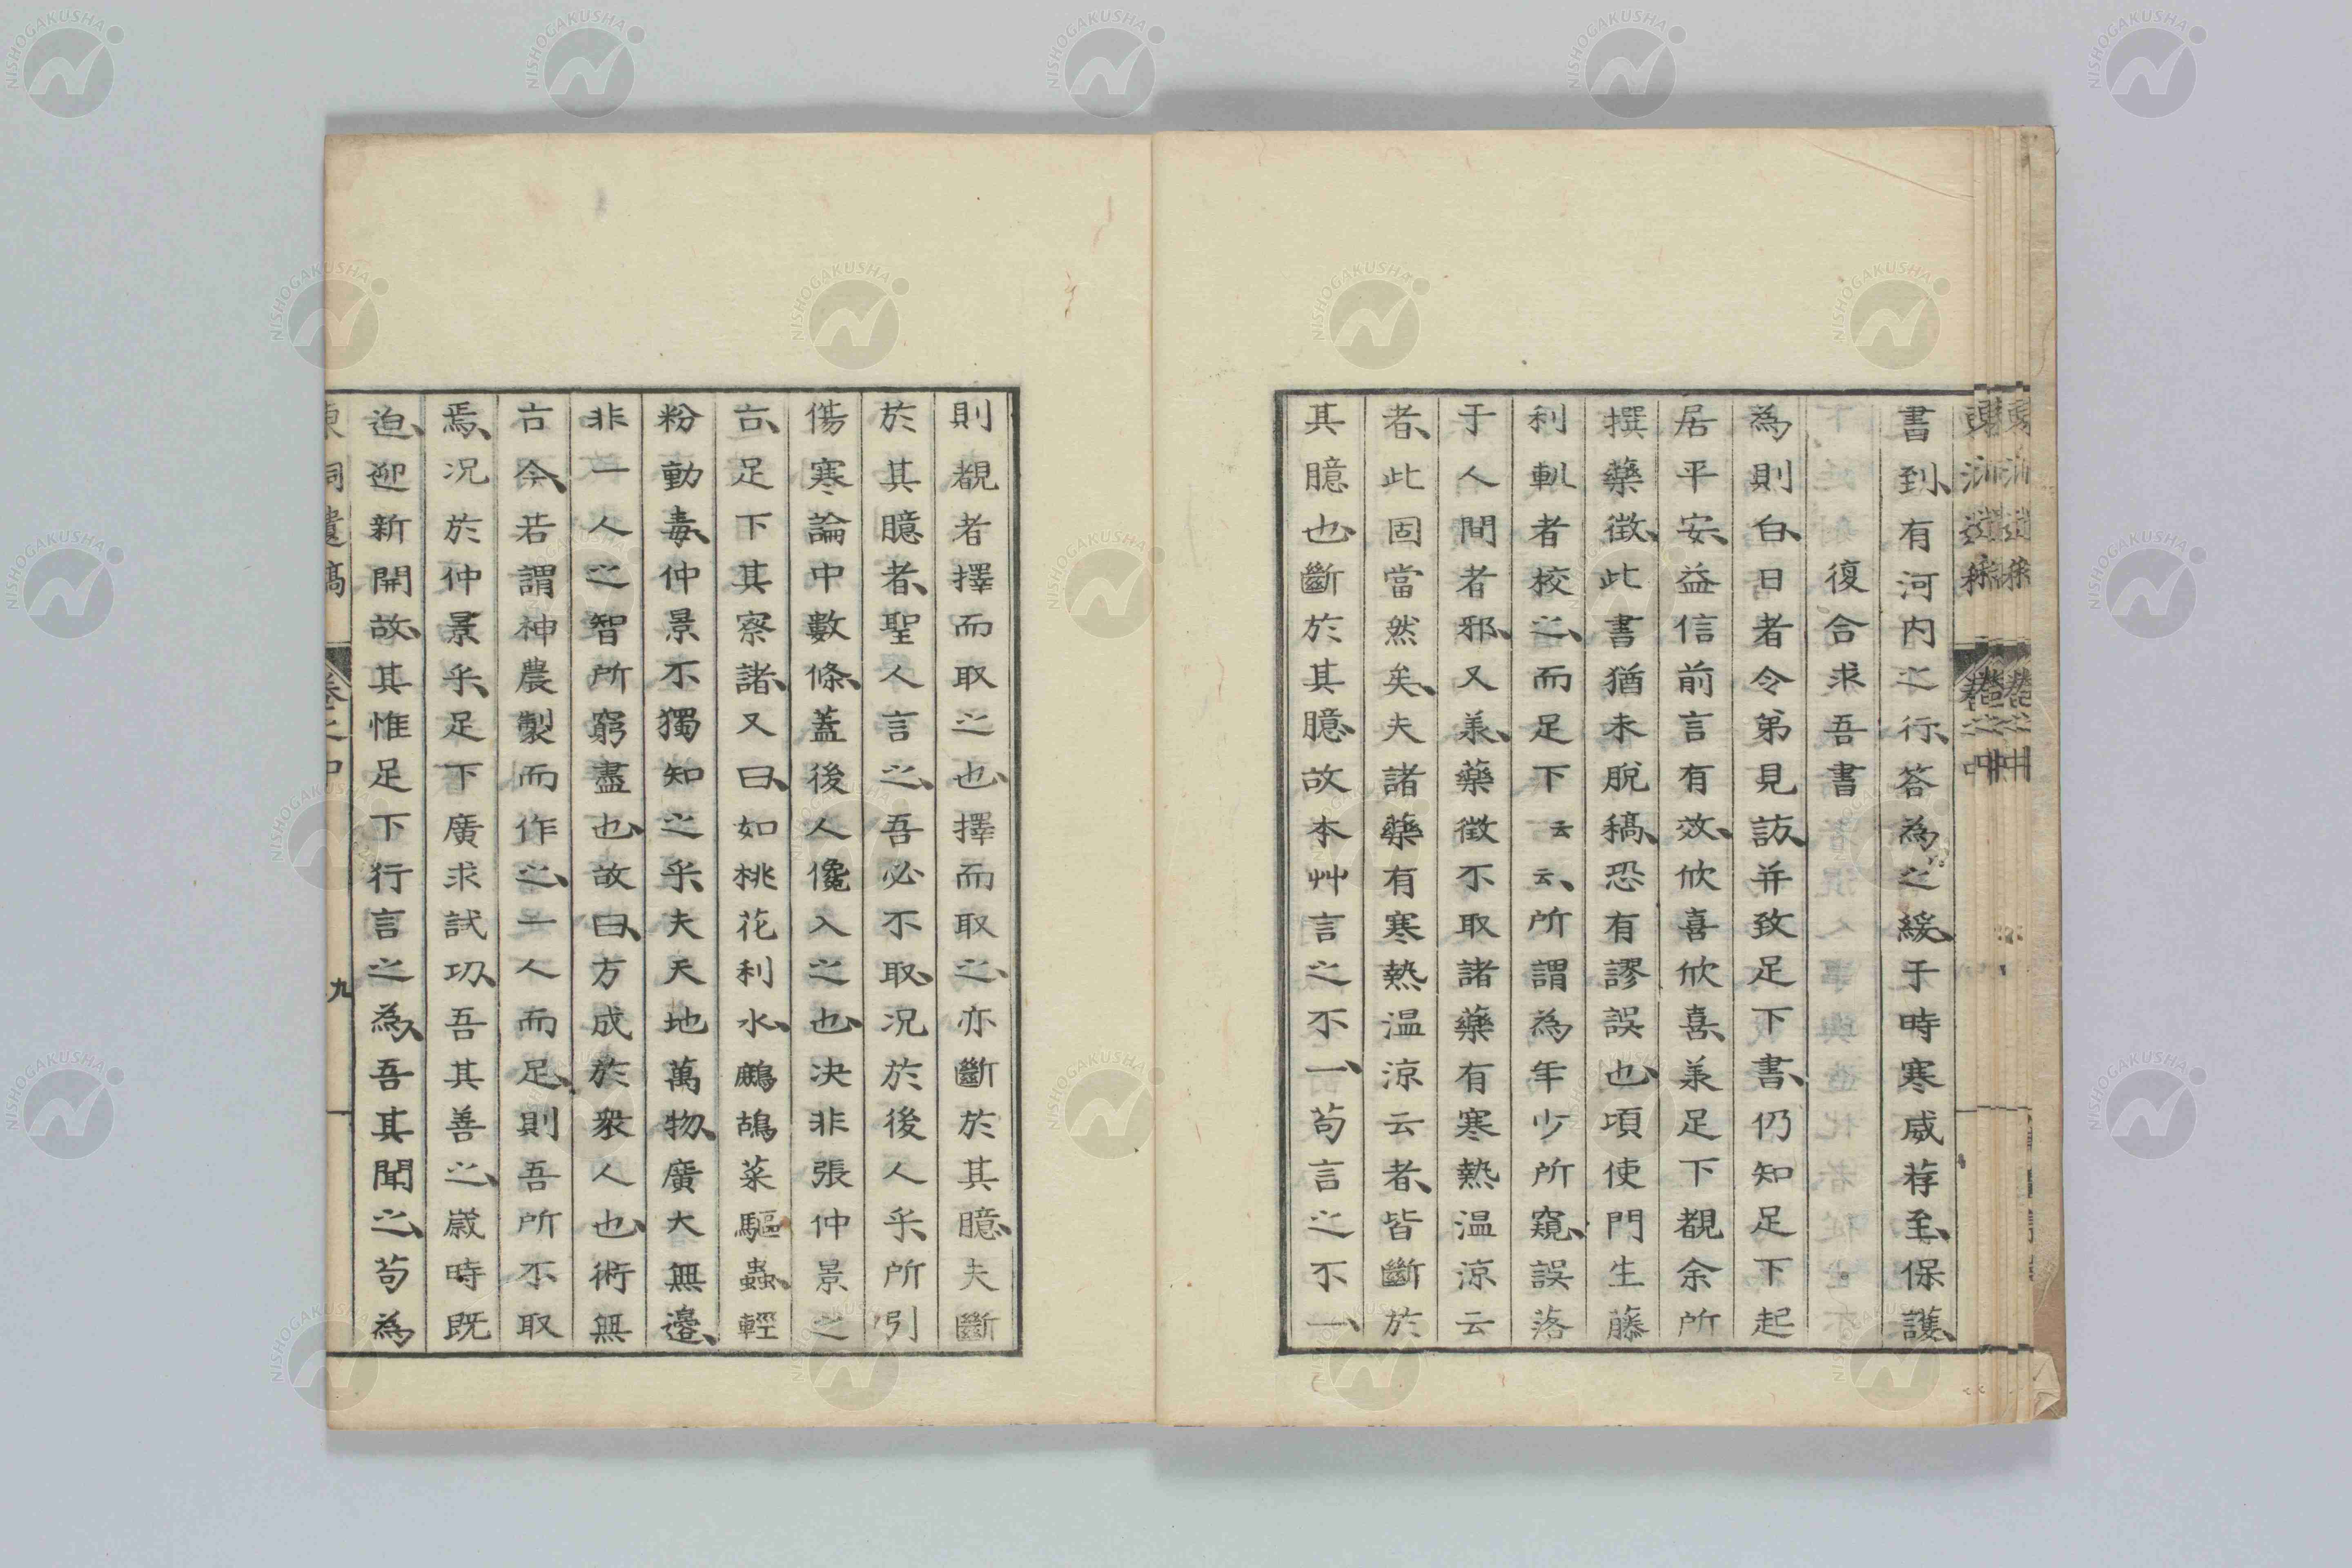 書到、有河内之行、答為之緩、于時寒威荐至、保護、
復合求吾書
為則白、日者令弟見訪、并致足下書、仍知足下起
居平安、益信前言有效、欣喜欣喜、兼足下覩余所
撰藥徴、此書猶未脫稿、恐有謬誤也、項使門生藤
利軌者校之、而足下云云、所謂為年少所窺、誤落
于人間者邪、又兼、藥徴不取諸藥有寒熱温涼云
者、此固當然矣、夫諸藥有寒熱温涼云者、皆斷於
其臆也、斷於其臆、故本艸言之不一、苟言之不一、
則覩者擇而取之也、擇而取之、亦斷於其臆、夫斷
於其臆者、聖人言之、吾必不取、況於後人乎、所引
傷寒論中數條、蓋後人儳入之也、决非張仲景之
古、足下其察諸、又曰、如桃花利水、鷓鴣菜驅蟲、輕
粉動毒、仲景不獨知之乎、夫天地萬物、廣大無邉、
非一人之智所窮盡也、故曰、方成於衆人也、術無
古今、若謂神農製而作之、一人而足、則吾所不取
焉、况於仲景乎、足下廣求試功、吾其善之、嵗時既
迫、迎新開故、其惟足下行言之為、吾其聞之、苟為
東洞遺稿 卷之中 九
NISHOGAKUSHA